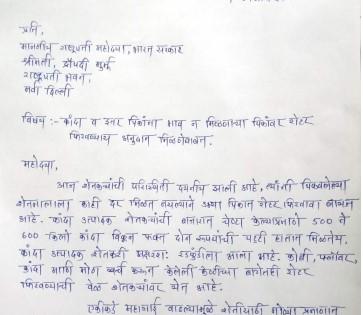 प्रति,
माननीय राष्ट्रपती महोदया, भारत सरकार
श्रीमती, द्रौपदी मुर्मू
राष्ट्रपती भवन,
नवी दिल्ली
विषय :- कांदा व इतर पिकांना भाव न मिळणाऱ्या पिकांवर रोटर
फिरवण्यास अनुदान मिळणेबाबत.
महोदया,
आज शेतकऱ्यांची परिस्थिती दयनीय झाली आहे, त्यांनी पिकवलेल्या
शेतमालाला काही दर मिळत नसल्याने अशा पिकात रोटर फिरवावा लागत
आहे. कांदा उत्पादक शेतकऱ्यांची थट्टा केल्याप्रमाणे 500 ते
600 किलो कांदा विकून फक्त दोन रूपयांची पट्टी हातात मिळतेय.
कांदा उत्पादक शेतकरी अक्षरशः रडकुंडीला आला आहे. कोबी, फ्लॉवर,
कांदा आदी मोठा खर्च करून केलेली बागेतही रोटर
फिरवण्याची वेळ शेतकऱ्यांवर येत आहे.
एकीकडे महागाई वाढल्यामुळे शेतीसाठी मोठ्या प्रमाणात